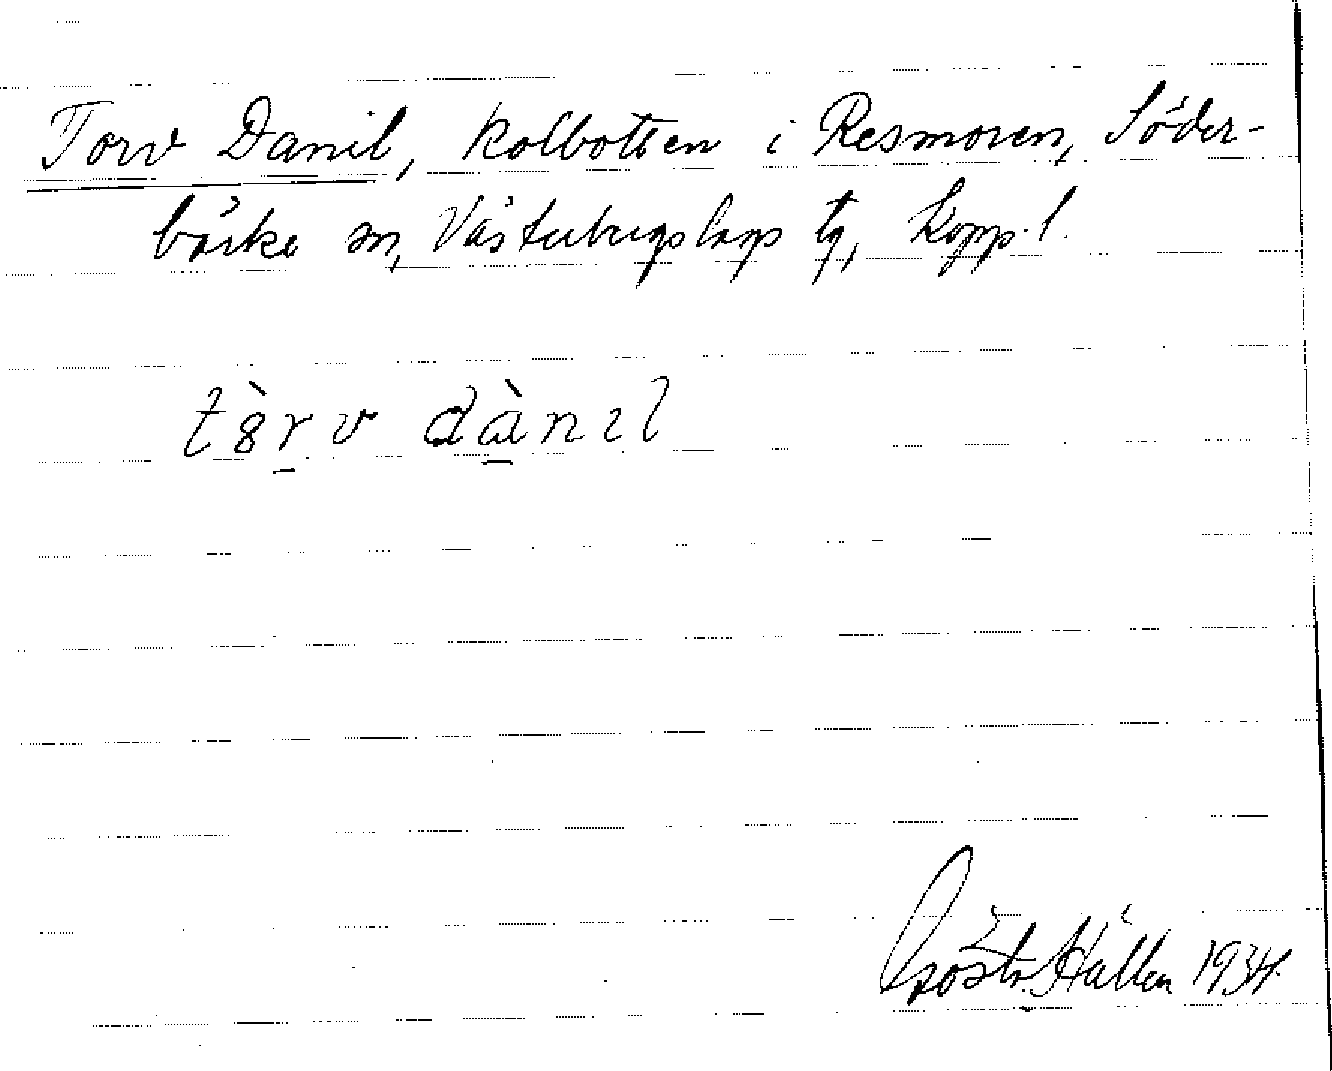 Torv Danil, kolbotten i Resmoren, Söder-
bärke sn, Västerbergslags tg, Kopp. l.
tȍrv dànıl
Gösta Hallén 1934.